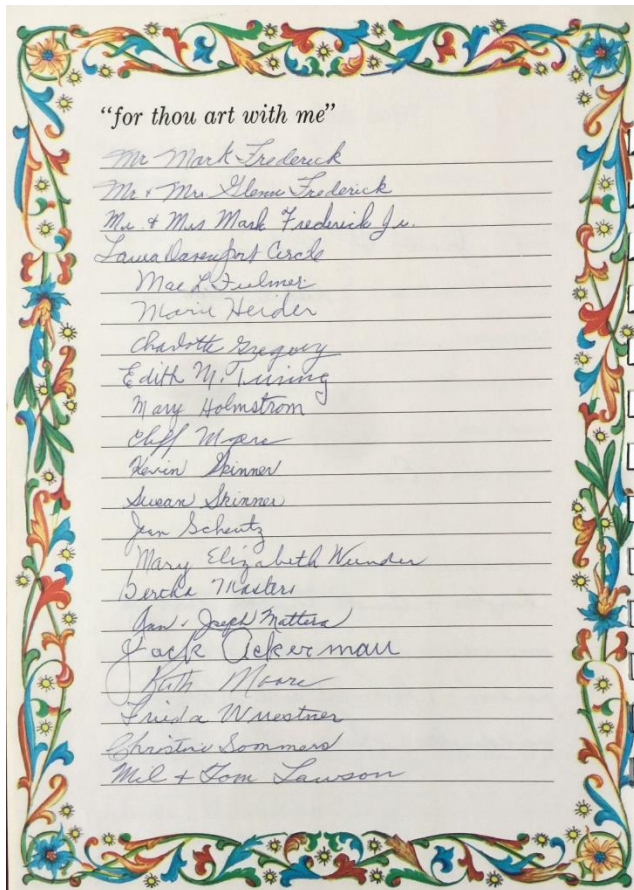 “for thou art with me”
Mr Mark Frederick
Mr + Mrs Glenn Frederick
Mr. & Mrs Mark Frederick Jr.
Laura Davenport Circle
Mae L Fulmer
Marie Heider
Charlotte Gregory
Edith M.
Mary Holmstrom
Cliff Myers
Kevin Skinner
Susan Skinner
Jean Scheutz
Mary Elizabeth Wunder
Bertha Masters
Jan & Joseph Mattera
Jack Ackerman
Ruth Moore
Frieda Wuestner
Christine Sommers
Mil + Tom Lawson